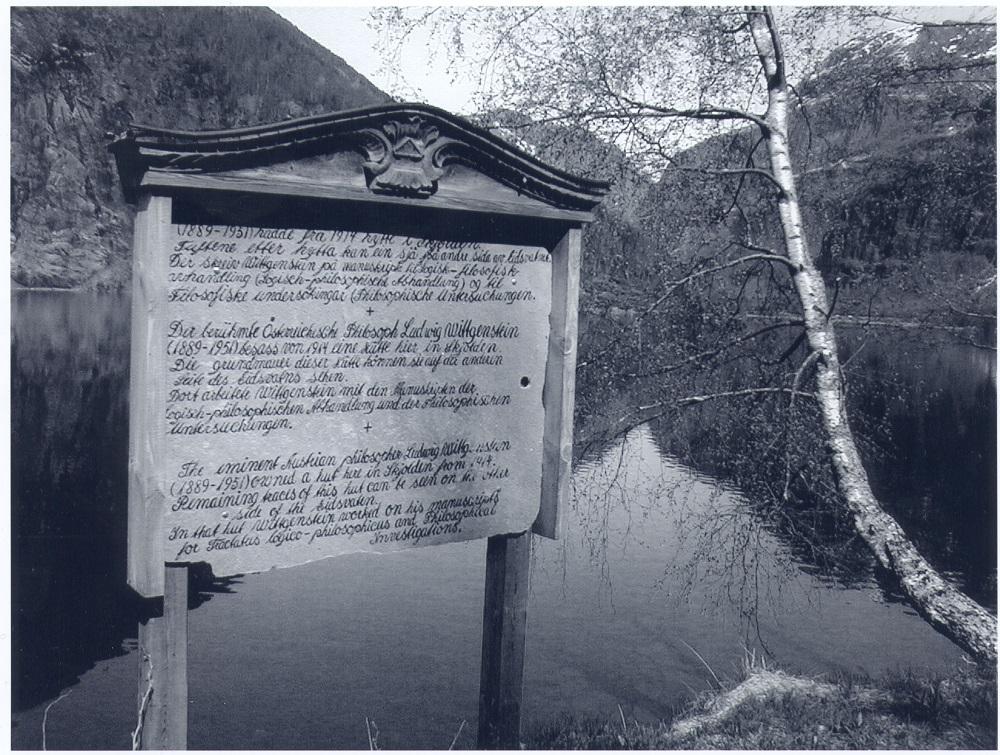 (1889-1951) hadde fra 1914 hytte i Skjolden.
Tuftene etter hytta kan ein sjå på andre side av Eidsvatnet.
Der skreiv Wittgenstein på manuskript til logisk-filosofisk
avhandling (Logisch-philosophische Abhandlung) og til
Filosofiske undersøkingar (Philosophische Untersuchungen.
+
Der berühmte Österreichische Philosoph Ludwig Wittgenstein
(1889-1951) besass von 1914 eine Hütte hier in Skjolden.
Die grundmauer dieser Hütte können sie auf der anderen
seite des Eidsvatns sehen.
Dort arbeitete Wittgenstein mit den Manuskripten der
logisch-philosophischen Abhandlung und der Philosophischen
Untersuchungen.
+
The eminent Austrian philosopher Ludwig Wittgenstein
(1889-1951) owned a hut here in Skjolden from 1914.
Remaining traces of this hut can be seen on the other
side of the Eidsvaten.
In that hut Wittgenstein worked on his manuscripts
for Tractatus logico-philosophicus and Philosophical
Investigations.